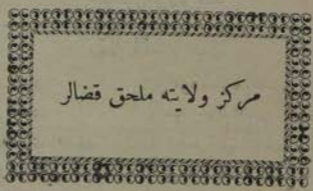 مركز ولايته ملحق قضالر